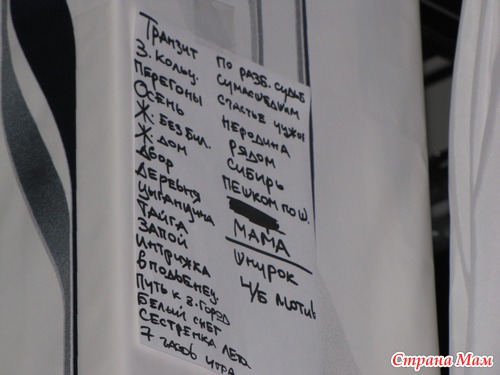 Транзит
З. Кольц.
Перегоны
Осень
Ж. Без бил.
Ж. Дом
Двор
Деревня
Цыганщина
Тайга
Запой
Интрижка
В подъенец.
Путь к З. Город
Белый снег
Сестрёнка лета
7 часов утра
По разб. судьб
Сумасшедшим
Счастье чужое
Неродина
Рядом
Сибирь
Пешком по ш.
Мама
Окурок
Ч/Б мотив
Страна Мам